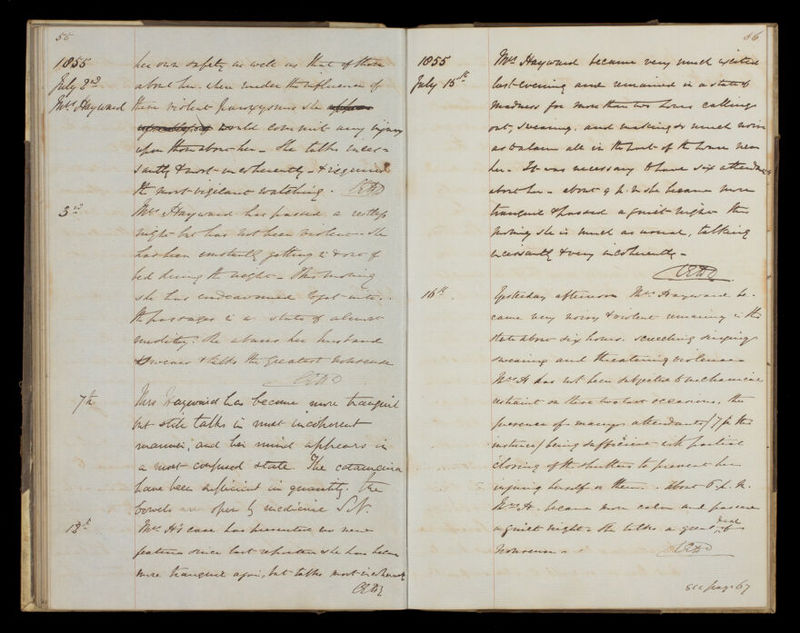 55
1855
July 2nd
Mrs Hayward
her own safety as well as that of those
about her when under the influence of
these violent paroxysms she
would commit any injury
upon those about her - She talks inces-
santly & most incoherently - & requires
the most vigilant watching.
3rd
Mrs Hayward has passed a restless
night but has not been violent - she
has been constantly getting in & out of
bed during the night - This morning
she has endeavoured to get into
the passages in a state of almost
nudity: She abuses her husband
swears & talks the greatest nonsense
7th
Mrs Hayward has become more tranquil
but still talks in most incoherent
manner, and her mind appears in
a most confused state The catamenia
have been deficient in quantity. The
bowels open by medicine
13th
Mrs H's case has presented no new
feature since last report she has been
more tranquil again, but talks most incoherently
56
1855
July 15th
Mrs Hayward became very much excited
last evening and remained in a state of
madness for more than two hours calling
out, swearing, and making so much noise
as to alarm all in the part of the house near
her - It was necessary to have six attendants
about her - about 9 p.m she became more
tranquil & passed a quiet night this
morning she is much as usual, talking
incessantly & very incoherently -
16th
Yesterday afternoon Mrs Hayward be-
came very noisy & violent remaining in this
state about six hours. screeching singing
swearing and threatening violence -
Mrs H has not been subjected to mechanical
restraint on these two last occasions, the
presence of many attendants (7 in this
instance) being sufficient with partial
closing of the shutters to prevent her
injuring herself or them - About p.m.
Mrs H. became more calm and passed
a quiet night - She talks a great deal of
nonsense -
see page 67